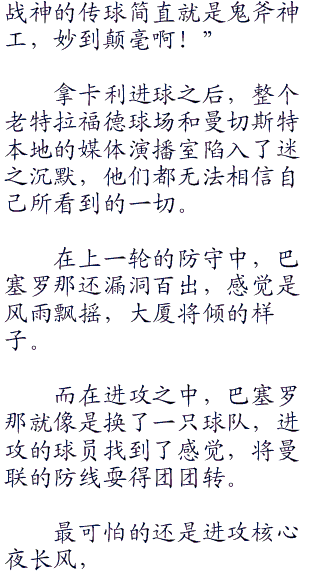 战神的传球简直就是鬼斧神
工，妙到颠毫啊！”
拿卡利进球之后，整个
老特拉福德球场和曼切斯特
本地的媒体演播室陷入了迷
之沉默，他们都无法相信自
己所看到的一切。
在上一轮的防守中，巴
塞罗那还漏洞百出，感觉是
风雨飘摇，大厦将倾的样
子。
而在进攻之中，巴塞罗
那就像是换了一只球队，进
攻的球员找到了感觉，将曼
联的防线耍得团团转。
最可怕的还是进攻核心
夜长风，